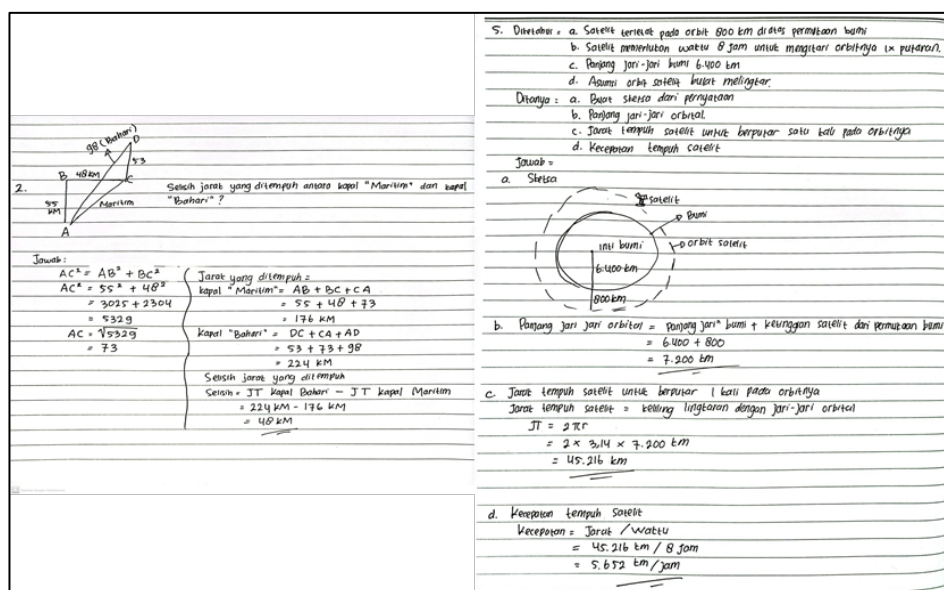 2.
98 (Bahari)
D
53
B 48 KM C
55 KM
Maritim
A
Selisih jarak yang ditempuh antara kapal "Maritim" dan kapal
"Bahari"?
Jawab:
AC² = AB² + BC²
AC² = 55² + 48²
= 3025 + 2304
= 5329
AC = √5329
= 73
Jarak yang ditempuh =
kapal "Maritim" = AB + BC + CA
= 55 + 48 + 73
= 176 KM
Kapal "Bahari" = DC + CA + AD
= 53 + 73 + 98
= 224 KM
Selisih jarak yang ditempuh
Selisih = JT Kapal Bahari - JT kapal Maritim
= 224 KM - 176 KM
= 48 KM
5. Diketahui = a. Satelit terletak pada orbit 800 km di atas permukaan bumi
b. Satelit memerlukan waktu 8 jam untuk mengitari orbitnya 1x putaran.
c. Panjang jari-jari bumi 6.400 km
d. Asumsi orbit satelit bulat melingkar.
Ditanya : a. Buat sketsa dari pernyataan
b. Panjang jari-jari orbital.
c. Jarak tempuh satelit untuk berputar satu kali pada orbitnya
d. Kecepatan tempuh satelit
Jawab =
a. Sketsa
satelit
Bumi
orbit satelit
inti bumi
6.400 km
800 km
b. Panjang jari jari orbital = panjang jari² bumi + ketinggian satelit dari permukaan bumi
= 6.400 + 800
= 7.200 km
c. Jarak tempuh satelit untuk berputar 1 kali pada orbitnya
Jarak tempuh satelit = keliling lingkaran dengan jari-jari orbital
JT = 2πr
= 2 x 3,14 x 7.200 km
= 45.216 km
d. Kecepatan tempuh satelit
Kecepatan = Jarak / waktu
= 45.216 km / 8 jam
= 5.652 km/jam